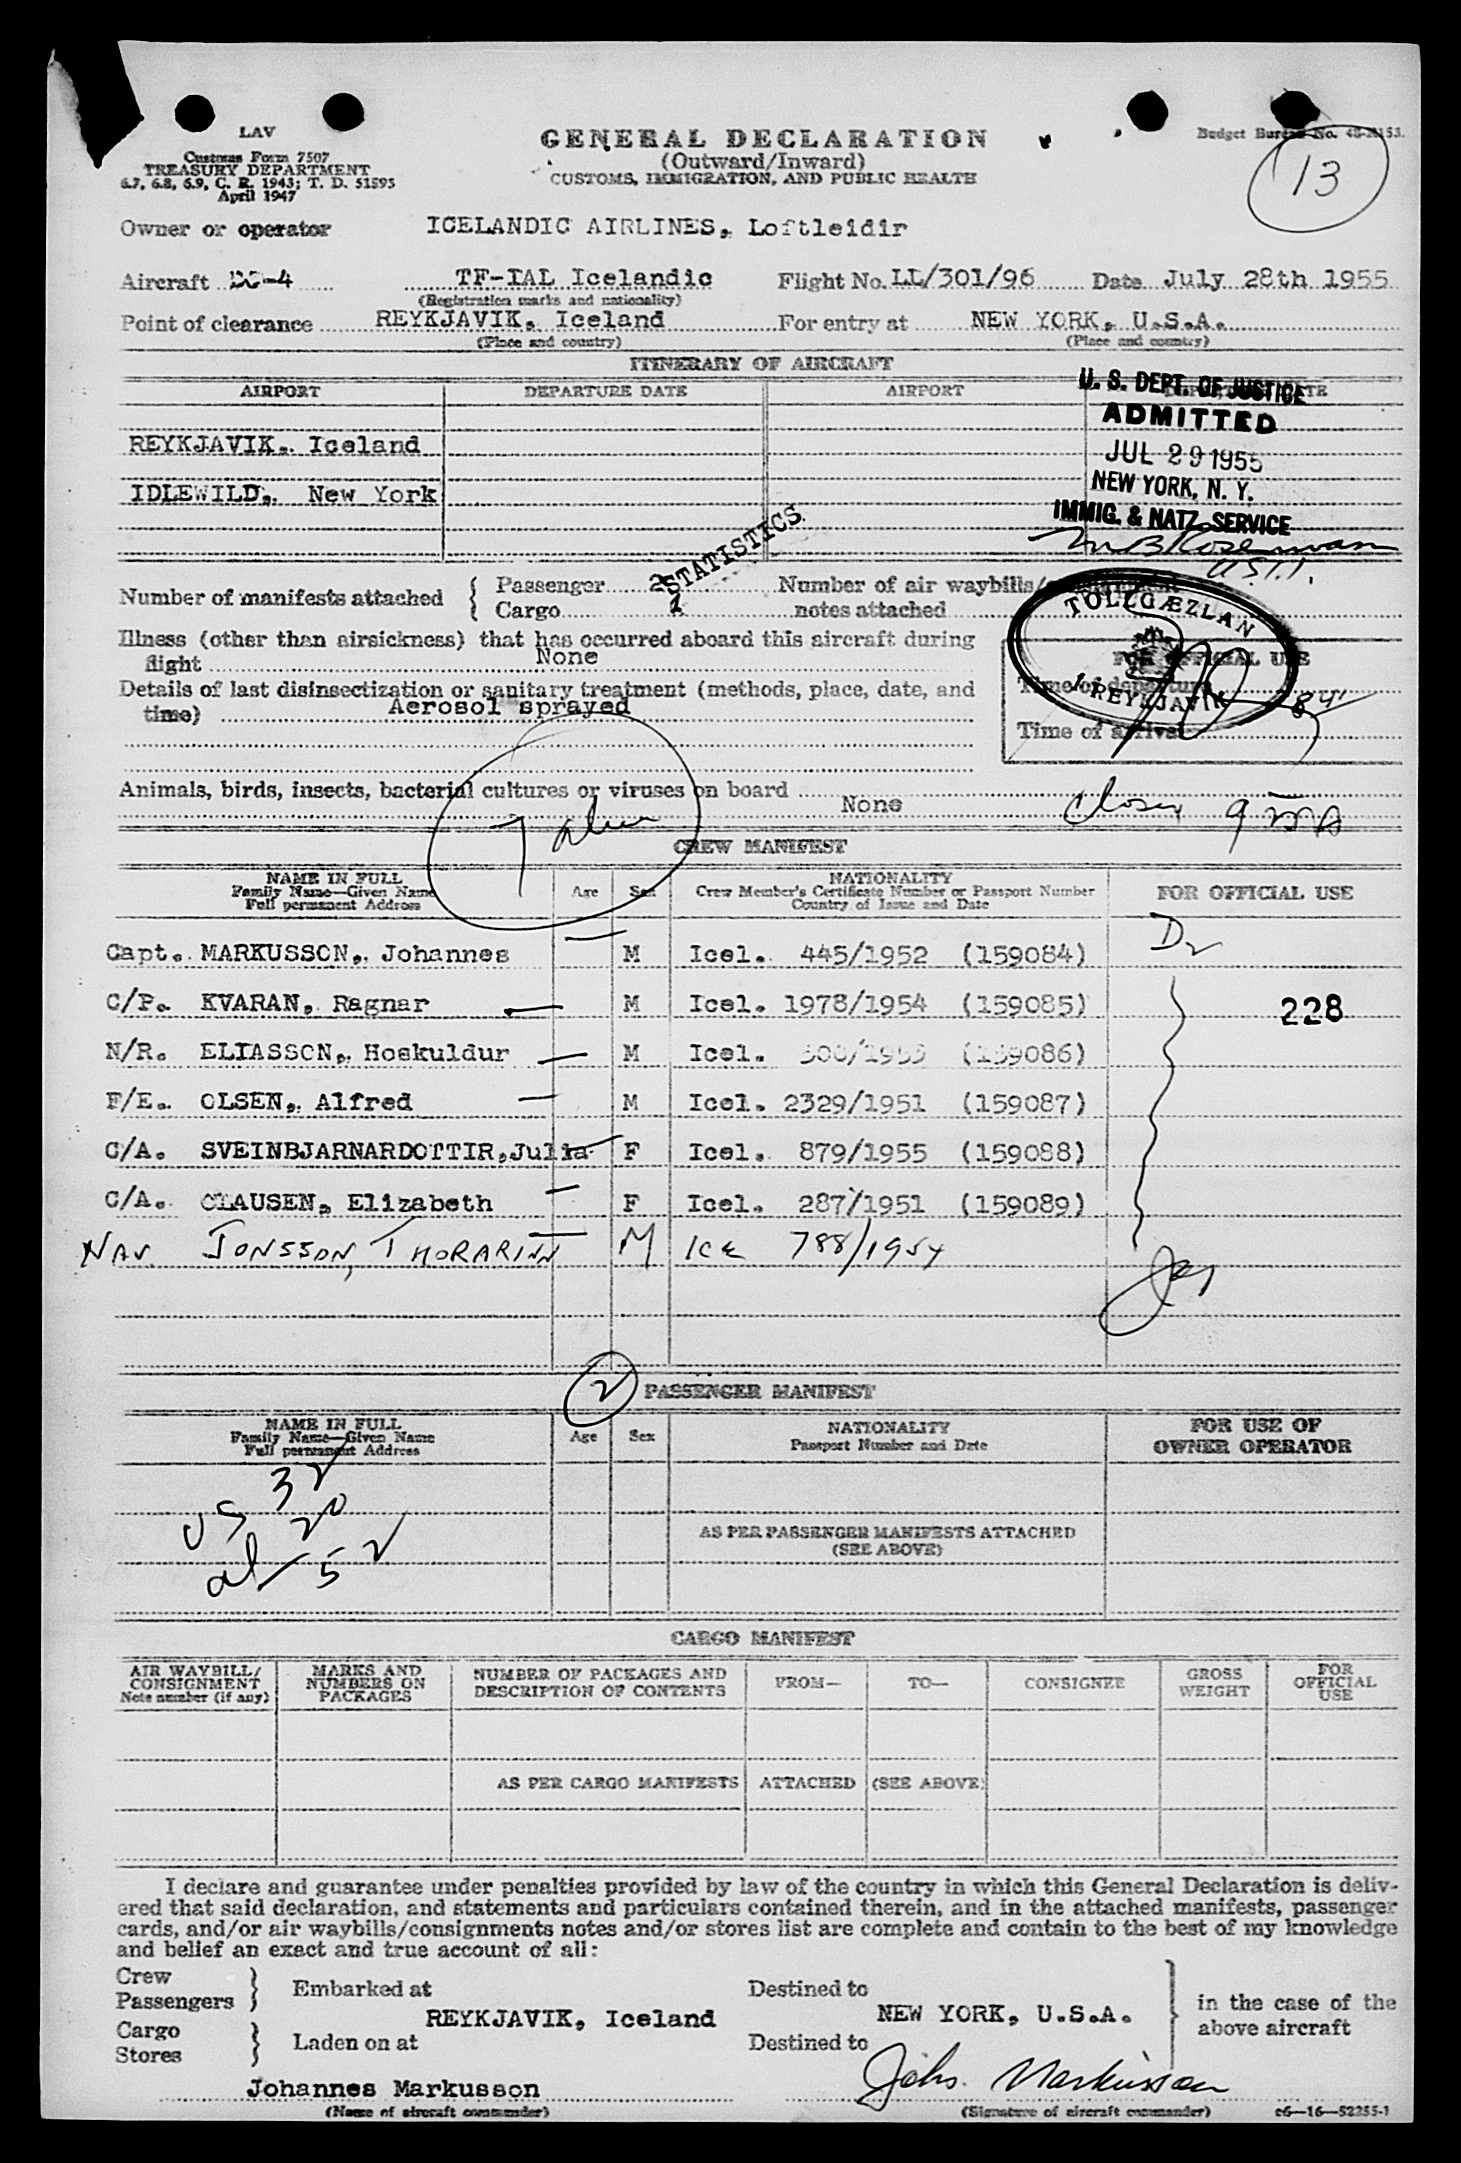 LAV
Customs Form 7507
TREASURY DEPARTMENT
6.7, 6.8, 6.9, C. R. 1943; T. D. 51595
April 1947
GENERAL DECLARATION
(Outward/Inward)
CUSTOMS, IMMIGRATION, AND PUBLIC HEALTH
Budget Bureau No. 48-R153.
13
Owner or operator ICELANDIC AIRLINES, Loftleidir
Aircraft DC-4 TF-IAL Icelandic Flight No. LL/301/96 Date July 28th 1955
(Registration marks and nationality)
Point of clearance REYKJAVIK, Iceland For entry at NEW YORK, U.S.A.
(Place and country) (Place and country)
ITINERARY OF AIRCRAFT
AIRPORT DEPARTURE DATE AIRPORT
U. S. DEPT. OF JUSTICE
ADMITTED
JUL 29 1955
NEW YORK, N. Y.
IMMIG. & NATZ. SERVICE
REYKJAVIK, Iceland
IDLEWILD, New York
STATISTICS
Number of manifests attached { Passenger 2 Number of air waybills/
Cargo 1 notes attached
TOLLGÆZLAN
Í REYKJAVÍK
Illness (other than airsickness) that has occurred aboard this aircraft during
flight None
FOR OFFICIAL USE
Details of last disinsectization or sanitary treatment (methods, place, date, and
time) Aerosol sprayed
Time of departure
Time of arrival
Animals, birds, insects, bacterial cultures or viruses on board None
CREW MANIFEST
NAME IN FULL
Family Name—Given Name
Full permanent Address
Age Sex
NATIONALITY
Crew Member's Certificate Number or Passport Number
Country of Issue and Date
FOR OFFICIAL USE
Capt. MARKUSSON, Johannes M Icel. 445/1952 (159084)
C/P. KVARAN, Ragnar M Icel. 1978/1954 (159085) 228
N/R. ELIASSON, Hoskuldur M Icel. (159086)
F/E. OLSEN, Alfred M Icel. 2329/1951 (159087)
C/A. SVEINBJARNARDOTTIR, Julia F Icel. 879/1955 (159088)
C/A. CLAUSEN, Elizabeth F Icel. 287/1951 (159089)
NAV. JONSSON, THORARINN M ICE 788/1954
2 PASSENGER MANIFEST
NAME IN FULL
Family Name—Given Name
Full permanent Address
Age Sex
NATIONALITY
Passport Number and Date
FOR USE OF
OWNER OPERATOR
32
US 20
al 52
AS PER PASSENGER MANIFESTS ATTACHED
(SEE ABOVE)
CARGO MANIFEST
AIR WAYBILL/
CONSIGNMENT
Note number (if any)
MARKS AND
NUMBERS ON
PACKAGES
NUMBER OF PACKAGES AND
DESCRIPTION OF CONTENTS
FROM— TO— CONSIGNEE
GROSS
WEIGHT
FOR
OFFICIAL
USE
AS PER CARGO MANIFESTS ATTACHED (SEE ABOVE)
I declare and guarantee under penalties provided by law of the country in which this General Declaration is deliv-
ered that said declaration, and statements and particulars contained therein, and in the attached manifests, passenger
cards, and/or air waybills/consignments notes and/or stores list are complete and contain to the best of my knowledge
and belief an exact and true account of all:
Crew
Passengers } Embarked at Destined to
REYKJAVIK, Iceland NEW YORK, U.S.A.
in the case of the
above aircraft
Cargo
Stores } Laden on at Destined to
Johannes Markusson Johs. Markusson
(Name of aircraft commander) (Signature of aircraft commander) c6—16—52255-1